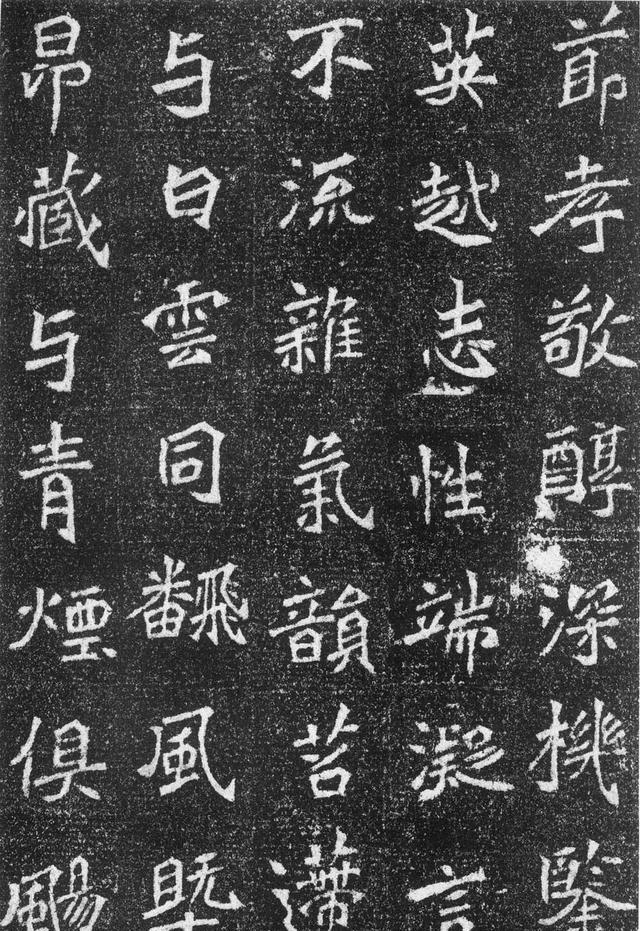 莭孝敬醇深機鑒
英越志性端凝言
不流雜氣韻苕遰
与白雲同飜風槩
昂藏与青煙俱颺